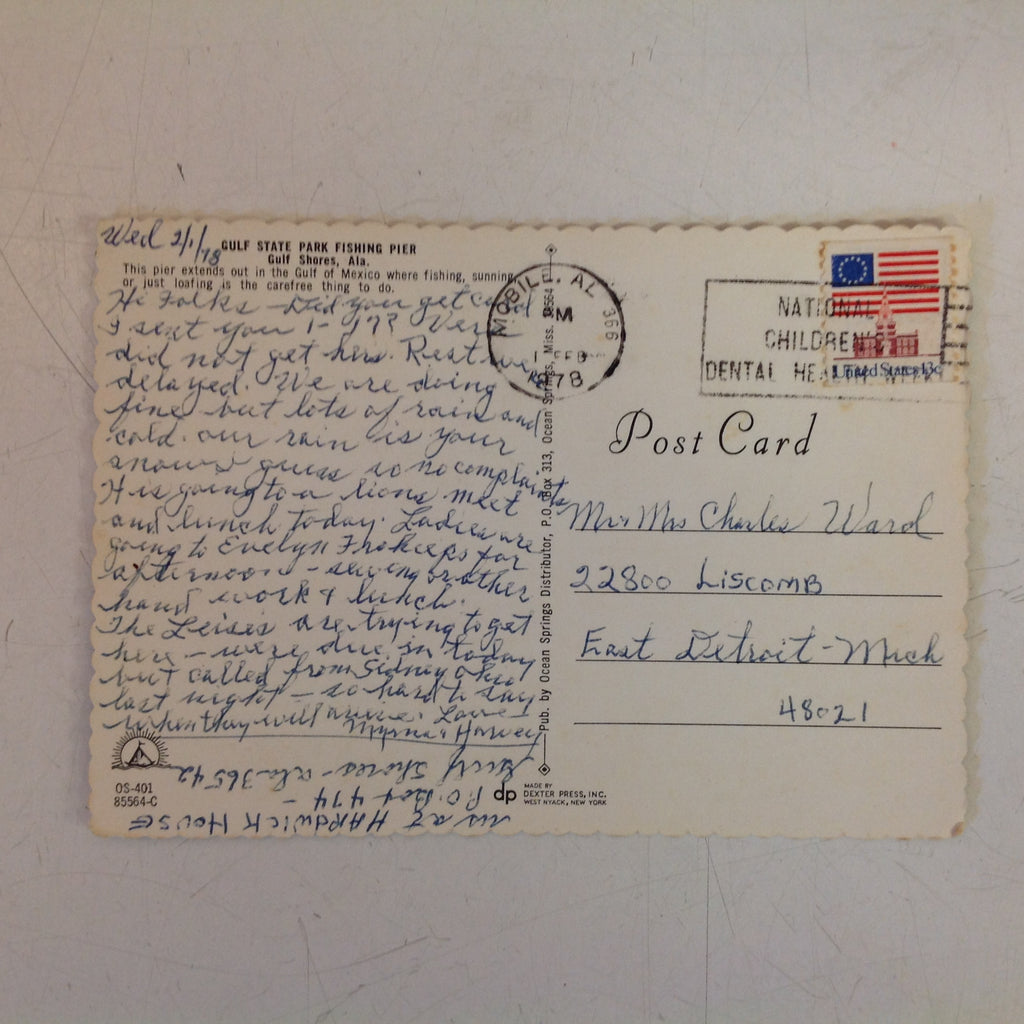 Wed 2/1/78
GULF STATE PARK FISHING PIER
Gulf Shores, Ala.
This pier extends out in the Gulf of Mexico where fishing, sunning,
or just loafing is the carefree thing to do.
Hi Folks - Did you get card
I sent you 1-17? Vera
did not get hers. Rest were
delayed. We are doing
fine but lots of rain and
cold. our rain is your
snow I guess so no complaints
H is going to a lions meet
and lunch today. Ladies are
going to Evelyn for
afternoon - sewing or other
hand work & lunch.
The Leises are trying to get
here - were due in today
but called from Sidney Ohio
last night - so hard to say
when they will arrive. Love
Myrna & Harvey
us at HARDWICK HOUSE
P.O. Box 474 -
Gulf Shores - Ala 36542
OS-401
85564-C
Pub. by Ocean Springs Distributor, P.O. Box 313, Ocean Springs, Miss. 39564
dp
MADE BY
DEXTER PRESS, INC.
WEST NYACK, NEW YORK
MOBILE, AL 366
M
1 FEB
1978
NATIONAL
CHILDREN'S
DENTAL HEALTH WEEK
United States 13c
Post Card
Mr & Mrs Charles Ward
22800 LiscomB
East Detroit - Mich
48021